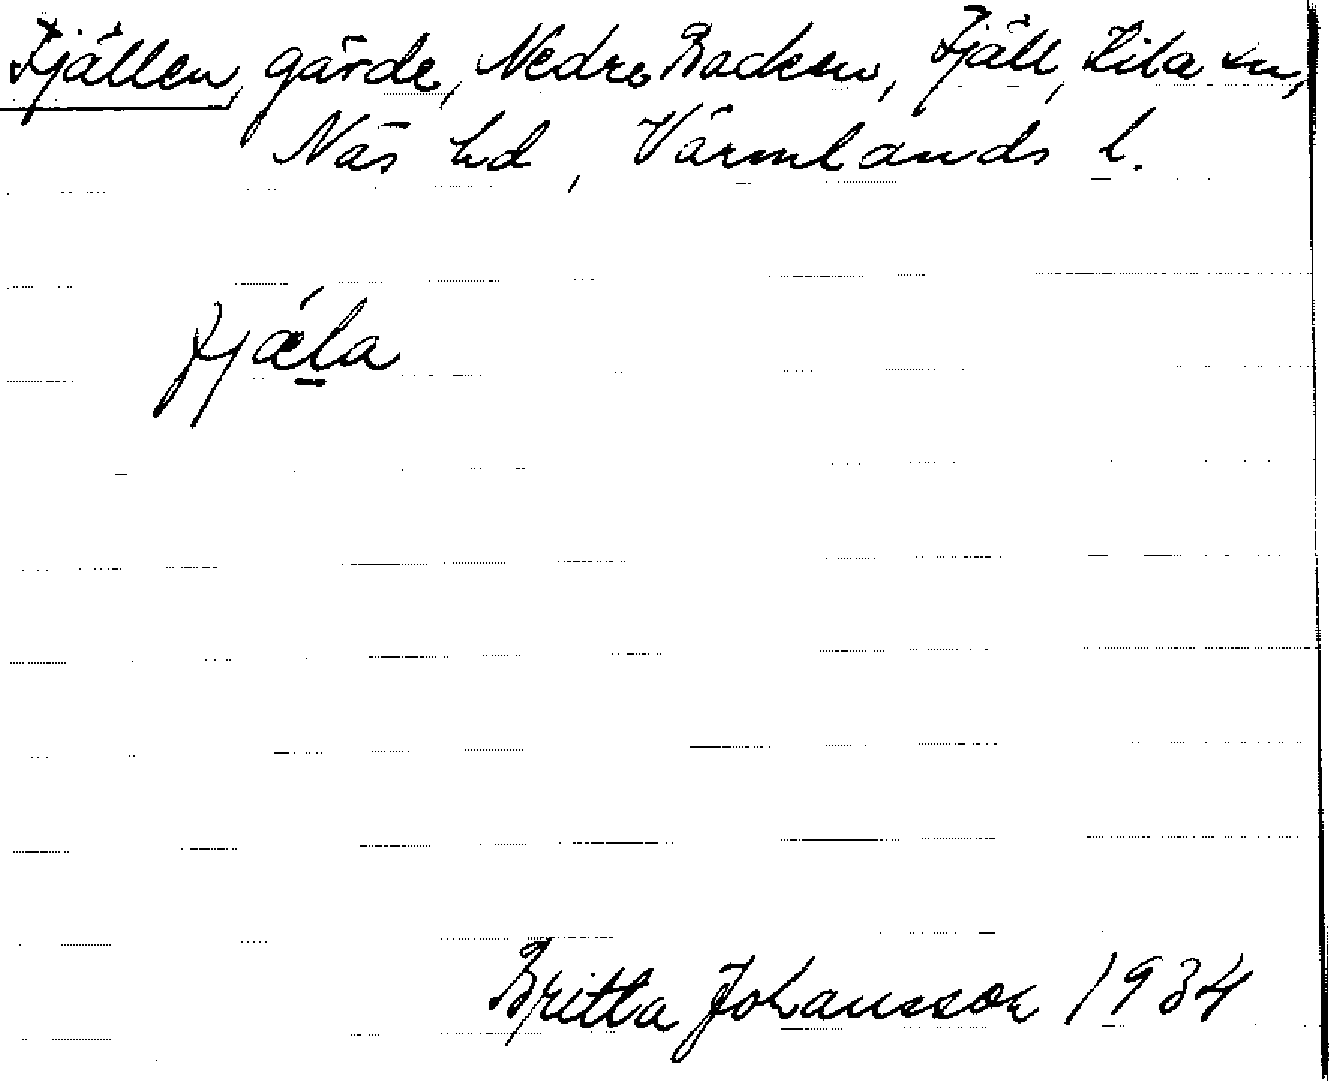 Fjällen, gärde, Nedre Backen, Fjäll, Kila sn,
Näs hd, Värmlands l.
fjæ´la
Britta Johansson 1934